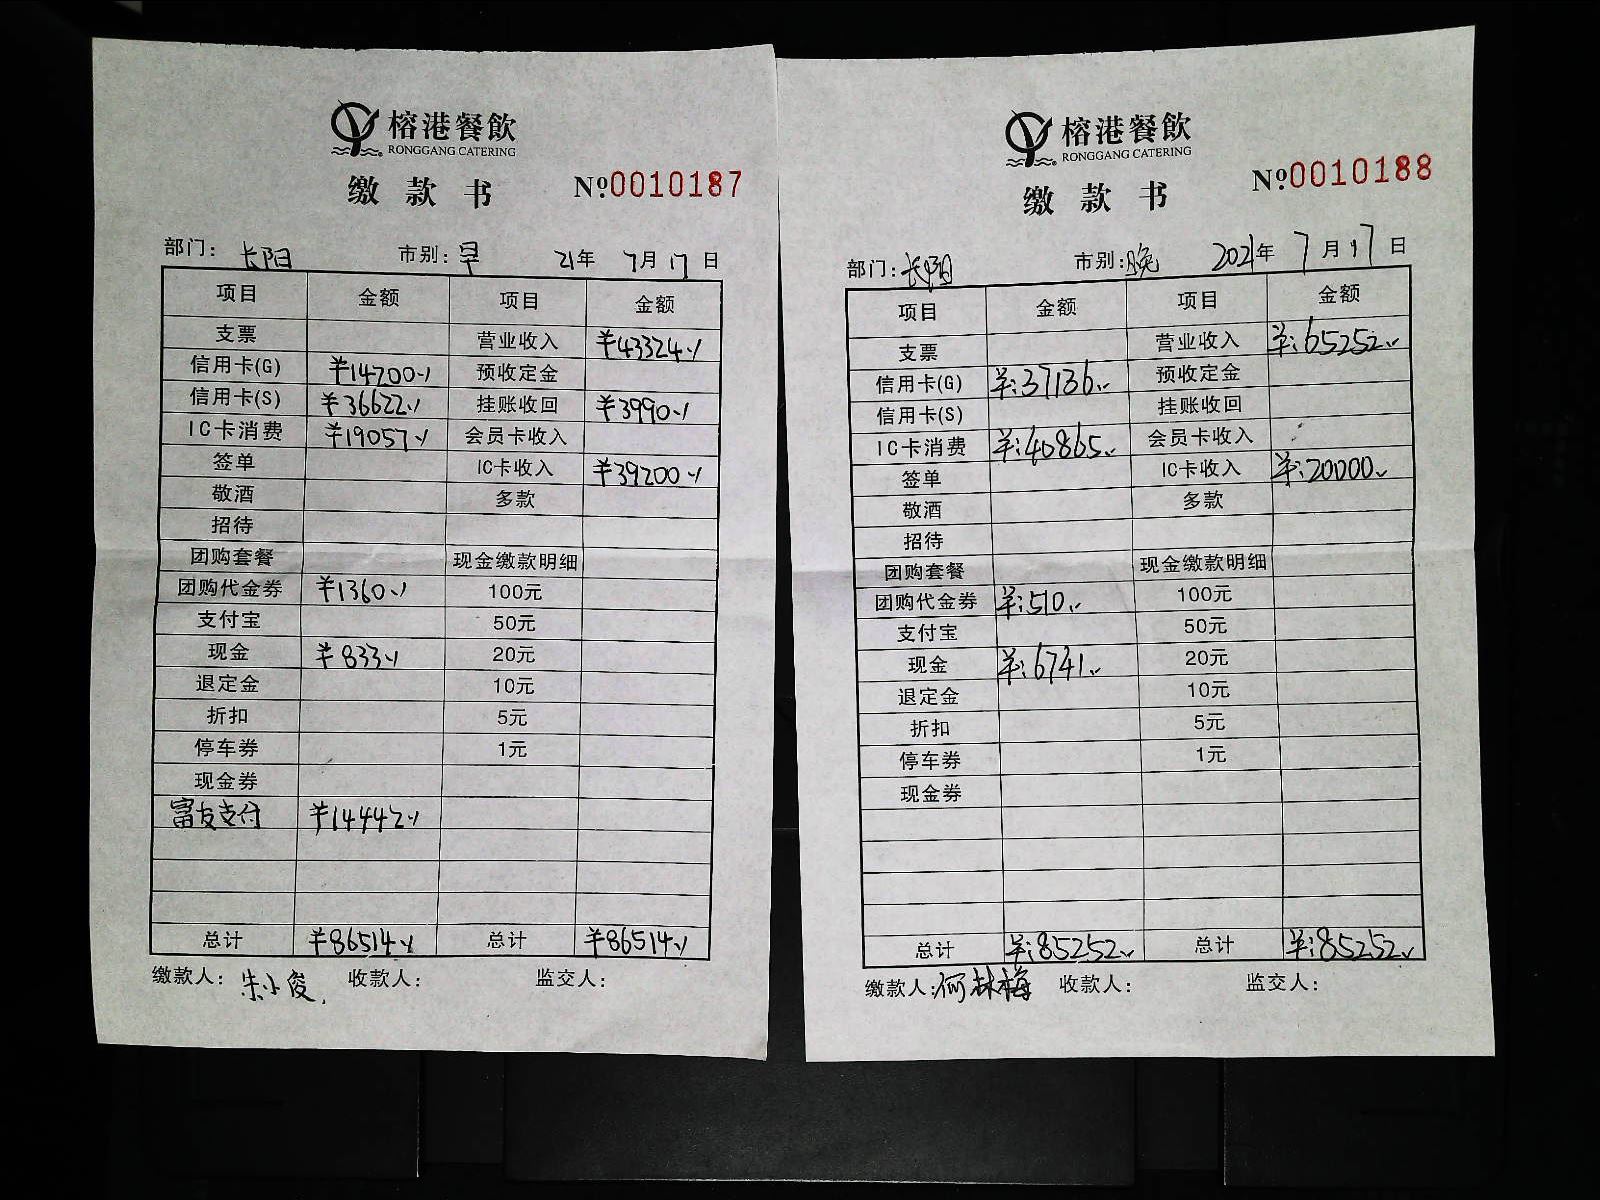 榕港餐飲
RONGGANG CATERING
缴款书 №0010187
部门: 长阳 市别: 早 21年 7月 17日
项目 金额 项目 金额
支票 营业收入 ¥43324
信用卡(G) ¥14200 预收定金
信用卡(S) ¥36622 挂账收回 ¥3990
IC卡消费 ¥19057 会员卡收入
签单 IC卡收入 ¥39200
敬酒 多款
招待
团购套餐 现金缴款明细
团购代金券 ¥1360 100元
支付宝 50元
现金 ¥833 20元
退定金 10元
折扣 5元
停车券 1元
现金券
富友支付 ¥14442
总计 ¥86514 总计 ¥86514
缴款人: 朱小俊 收款人: 监交人:
榕港餐飲
RONGGANG CATERING
缴款书 №0010188
部门: 长阳 市别: 晚 2021年 7月 17日
项目 金额 项目 金额
支票 营业收入 ¥:65252
信用卡(G) ¥:37136 预收定金
信用卡(S) 挂账收回
IC卡消费 ¥:40865 会员卡收入
签单 IC卡收入 ¥:20000
敬酒 多款
招待
团购套餐 现金缴款明细
团购代金券 ¥:510 100元
支付宝 50元
现金 ¥:6741 20元
退定金 10元
折扣 5元
停车券 1元
现金券
总计 ¥:85252 总计 ¥:85252
缴款人: 何林梅 收款人: 监交人: